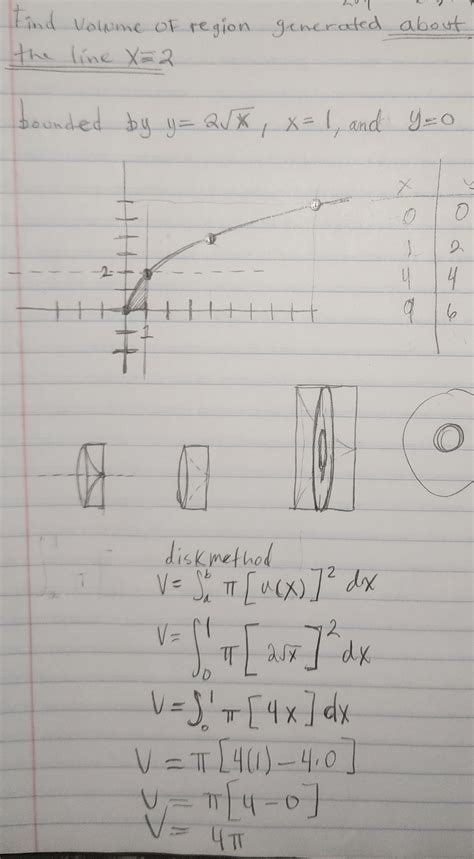 Find volume of region generated about
the line x=2
bounded by y= 2√x, x=1, and y=0
x
0 0
1 2
4 4
9 6
2
1
disk method
V= ∫ₐᵇ π [u(x)]² dx
V= ∫₀¹ π [2√x]² dx
V= ∫₀¹ π [4x] dx
V = π [4(1) – 4·0]
V = π [4 – 0]
V = 4π